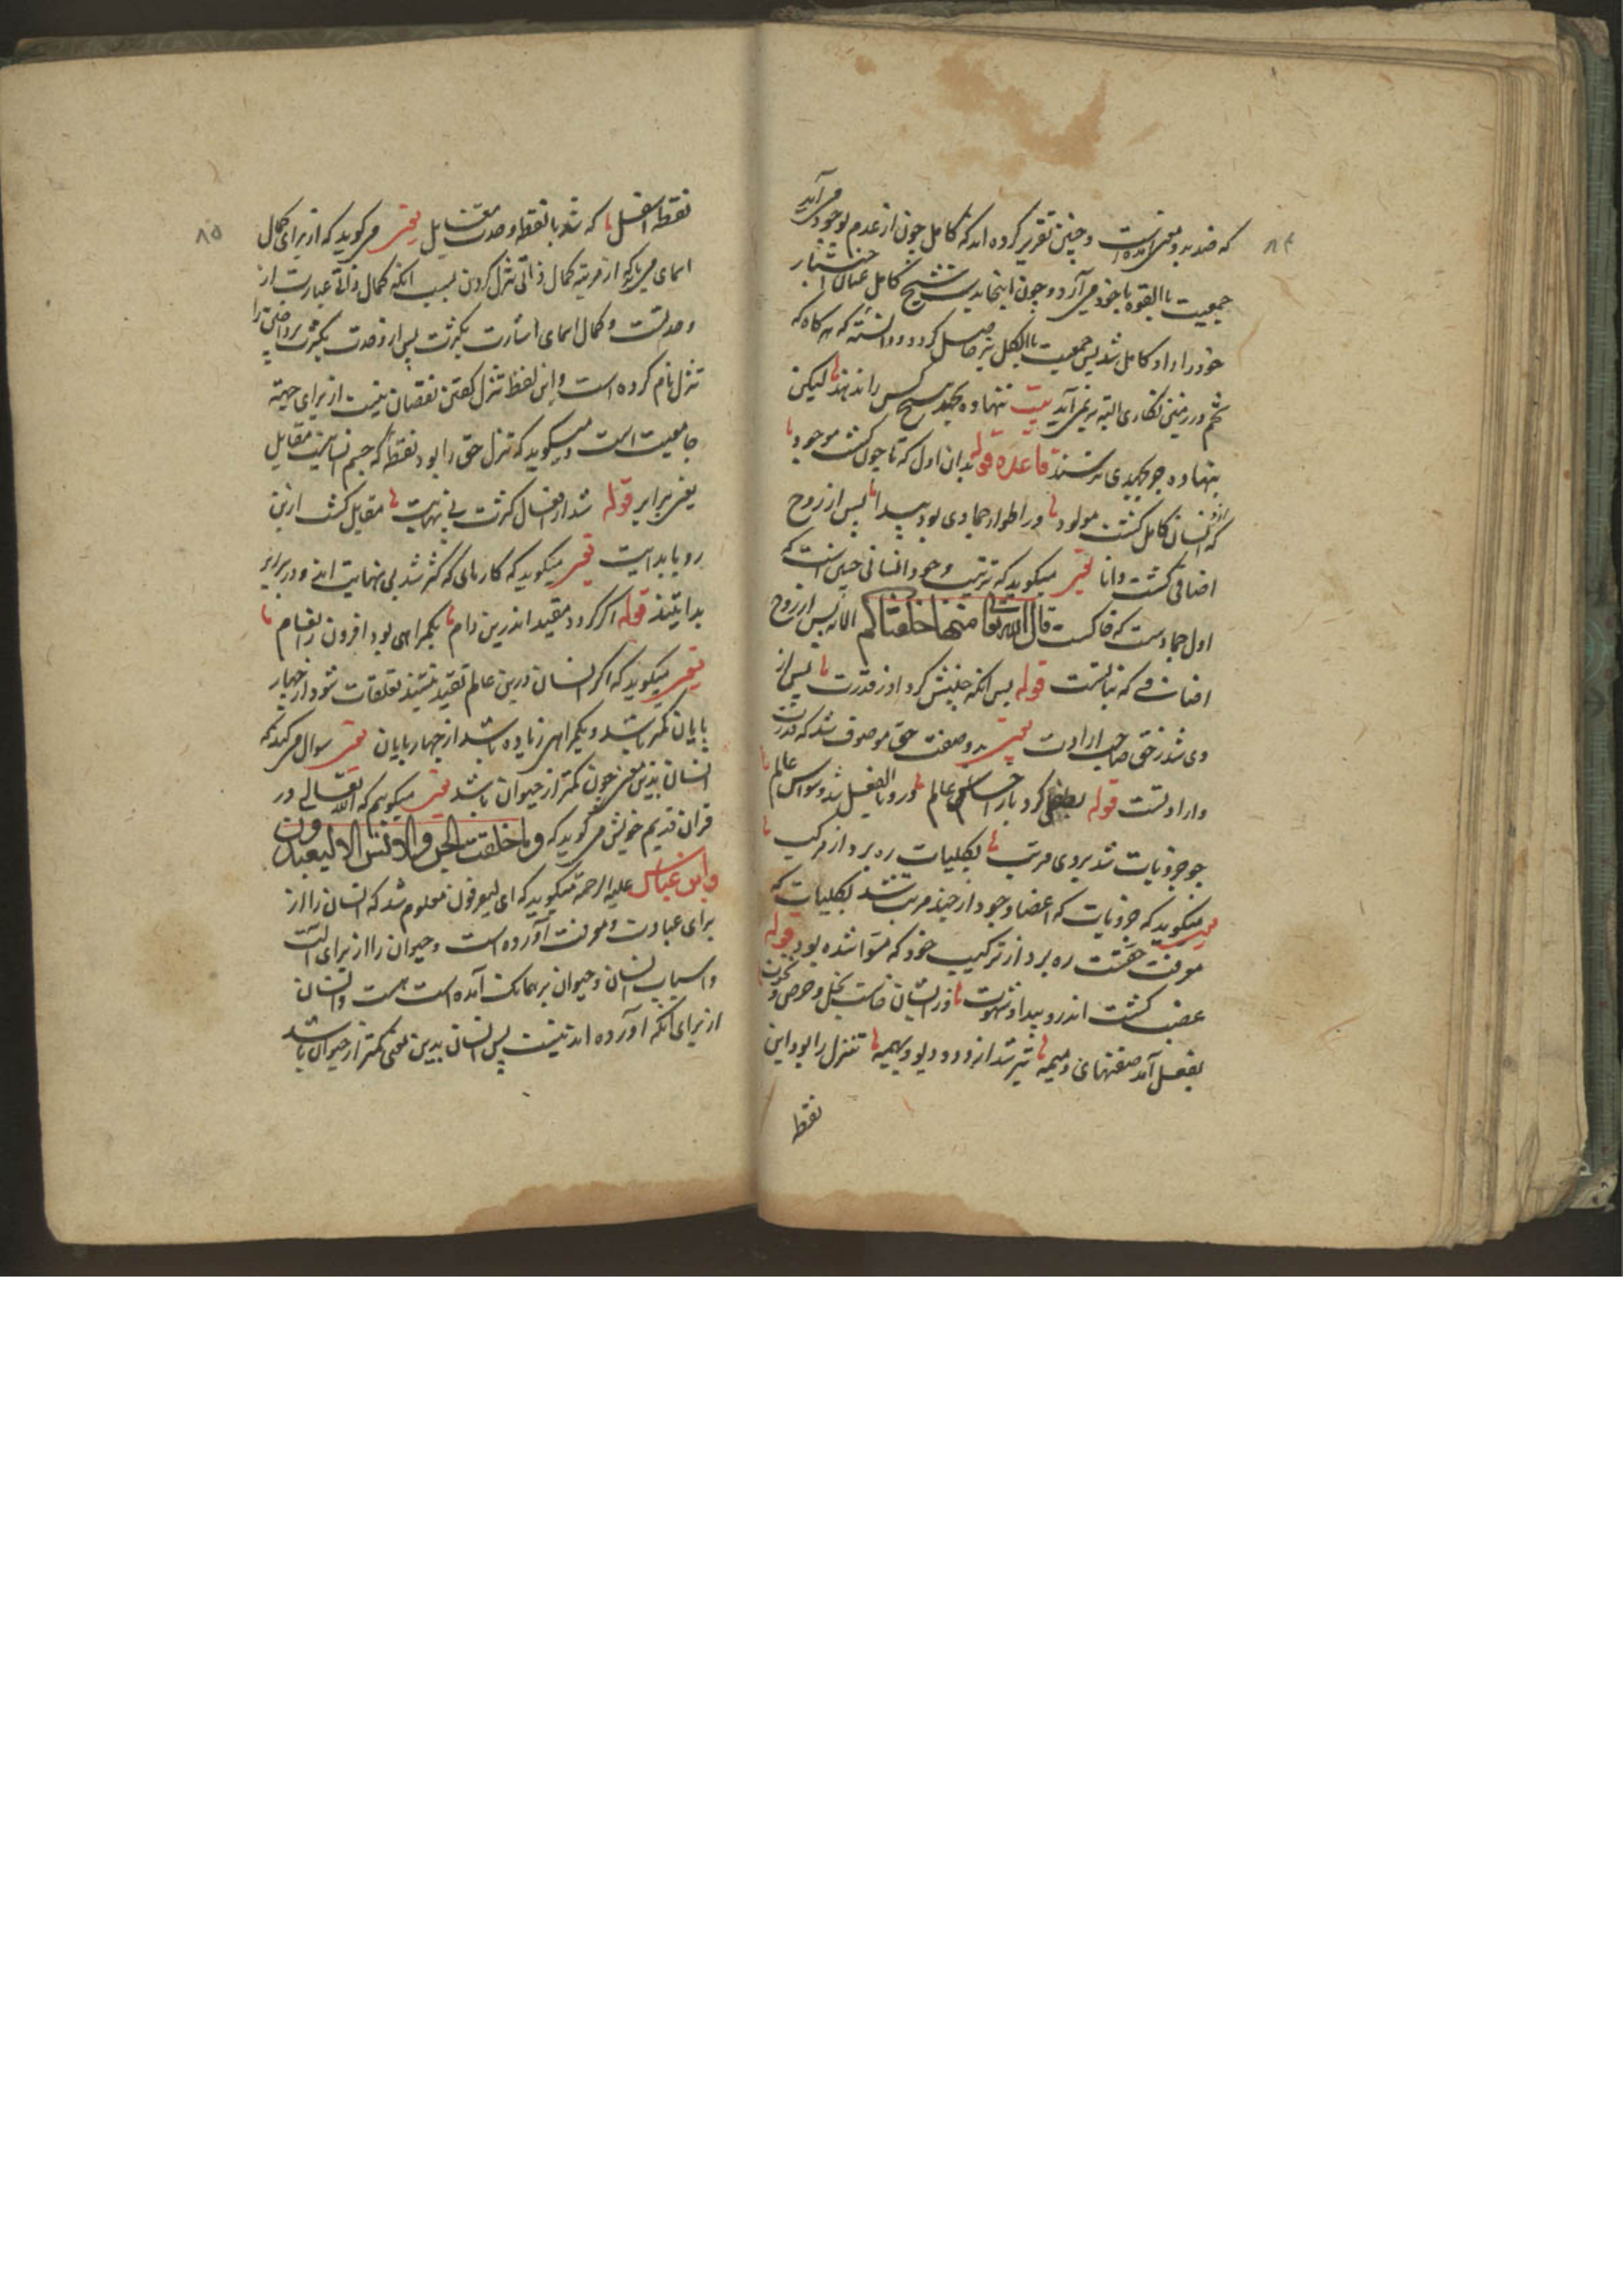 ۸۴
که ضد بدو معنی آمده است و چنین تقریر کرده اند که کامل چون از عدم بوجود می آید
جمعیت با القوه با خود می آرد و چون اینجا بدست شیخ کامل عنان اختیار
خود را داد کامل شد پس جمعیت با الکل نیز حاصل کرد و دانسته که هر گاه که
تخم در زمین نکاری البته بر نمی آید بیت ننهاده بجهد هیچ کس را ندهند لیکن
بنهاده چو جهدی برسند قاعده قوله بدان اول که تا چون گشت موجود
کز انسان کامل گشت مولود در اطوار جمادی بود پیدا پس از روح
اضافی گشت دانا یعنی میگوید که ترتیب وجود انسانی چنین است که
اول جمادست که خاکست قال الله تعالی منها خلقناکم الایه پس از روح
اضافی که نباتست قوله پس آنکه جنبش کرد او ز قدرت پس از
وی شد ز حق صاحب ارادت یعنی بدو صفت حق موصوف شد که قدرت
و ارادتست قوله بطفلی کرد باز احساس عالم درو بالفعل شد وسواس عالم
چو جزویات شد بروی مرتب بکلیات ره برد از مرکب
میگوید که جزویات که اعضا وجود از حیز مرتب شد بکلیات که
معرفت حقست ره برد از ترکیب خود که مسوا شده بود قوله
غضب گشت اندرو پیدا و شهوت وز ایشان خاست بخل و حرص و نخوت
بفعل آمد صفتهای ذمیمه بتر شد از دد و دیو و بهیمه تنزل را بود این
نقطه
۸۵
نقطه اسفل که شد با نقطه وحدت مقابل یعنی می گوید که از برای کمال
اسمای می باید که از مرتبه کمال ذاتی تنزل کردن بسبب آنکه کمال ذاتی عبارت از
وحدتست و کمال اسمای اشارت بکثرت پس از وحدت بکثرت پرداختن را
تنزل نام کرده است و این لفظ تنزل گفتن نقصان نیست از برای جهة
جامعیت است و میگوید که تنزل حق را بود نقطه که جسم انسانیت مقابل
یعنی برابر قوله شد از افعال کثرت بی نهایت مقابل گشت ازین
رو با بدایت یعنی میگوید که کارهای که کثیر شد بی نهایت اند و در برابر
بدایتند قوله اگر گردد مقید اندرین دام بگمراهی بود افزون ز انعام
یعنی میگوید که اگر انسان درین عالم تقید بتقید تعلقات شود از چهار
پایان کمتر باشد و بگمراهی زیاده باشد از چهار پایان یعنی سوال می کند که
انسان بدین معنی چون کمتر از حیوان باشد یعنی میگویم که الله تعالی در
قران قدیم خویش می گوید که وما خلقت الجن والانس الا لیعبدون
وابن عباس علیه الرحمة میگوید که ای لیعرفون معلوم شد که انسان را از
برای عبادت و معرفت آورده است و حیوان را از برای آلت
و اسباب انسان و حیوان بر همانکه آمده است هست و انسان
از برای آنکه آورده اند نیست پس انسان بدین معنی کمتر از حیوان باشد